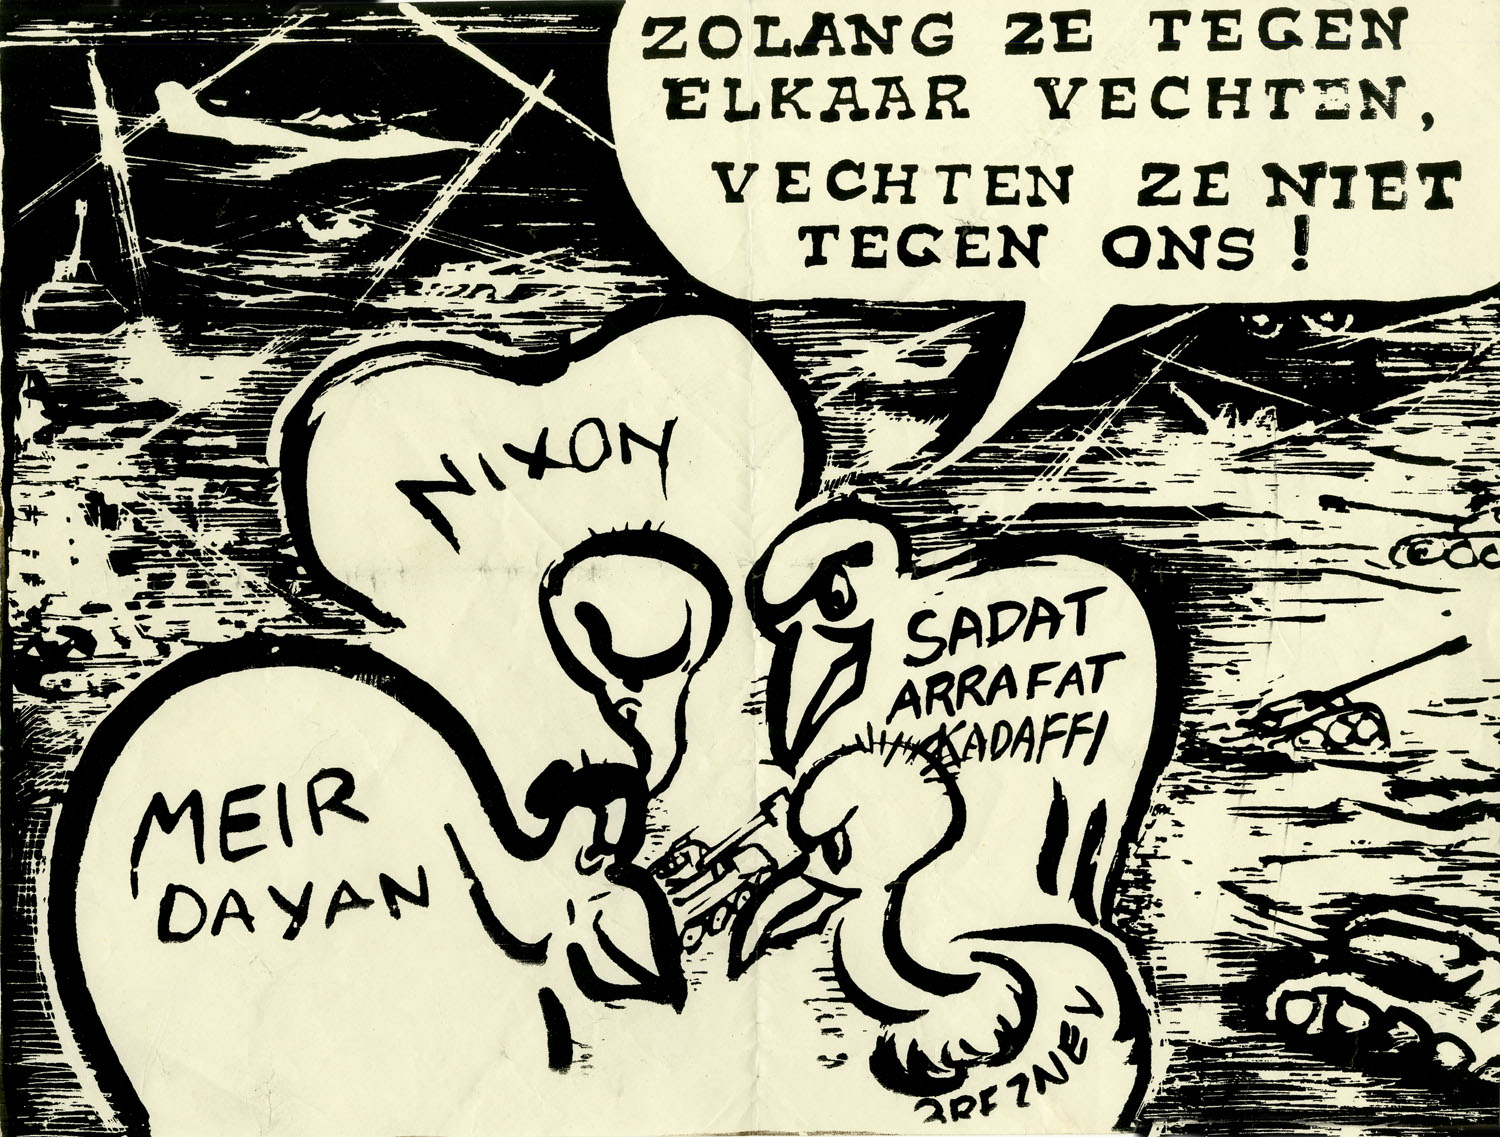 ZOLANG ZE TEGEN
ELKAAR VECHTEN,
VECHTEN ZE NIET
TEGEN ONS!
NIXON
SADAT
ARRAFAT
KADAFFI
MEIR
DAYAN
BREZNEV